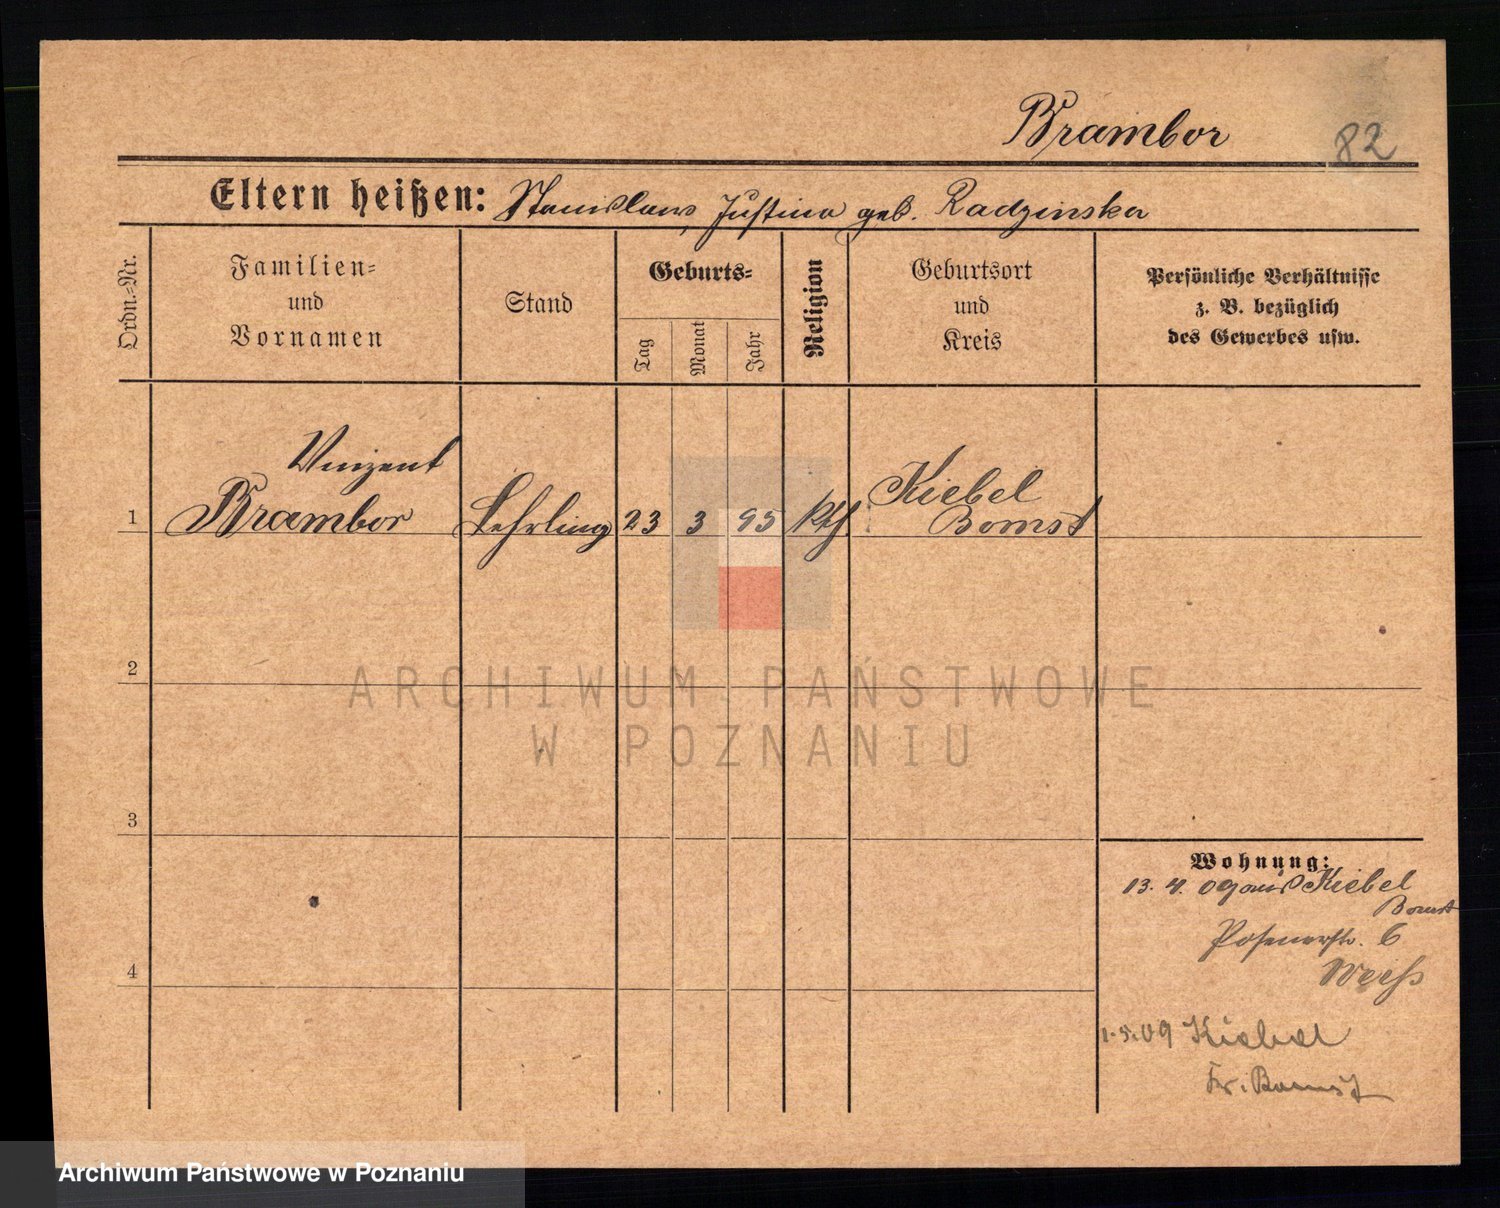 Brambor
82
Eltern heißen: Stanislaus, Justina geb. Radzinska
Ordn.-Nr.
Familien-
und
Vornamen
Stand
Geburts-
Tag
Monat
Jahr
Religion
Geburtsort
und
Kreis
Persönliche Verhältnisse
z. B. bezüglich
des Gewerbes usw.
1
Vinzent
Brambor
Lehrling
23
3
95
kth.
Kiebel
Bomst
2
3
4
Wohnung:
13. 4. 09 aus Kiebel
Bomst
Posenerstr. 6
Weiss
1. 5. 09 Kiebel
Kr. Bomst
ARCHIWUM PAŃSTWOWE
W POZNANIU
Archiwum Państwowe w Poznaniu